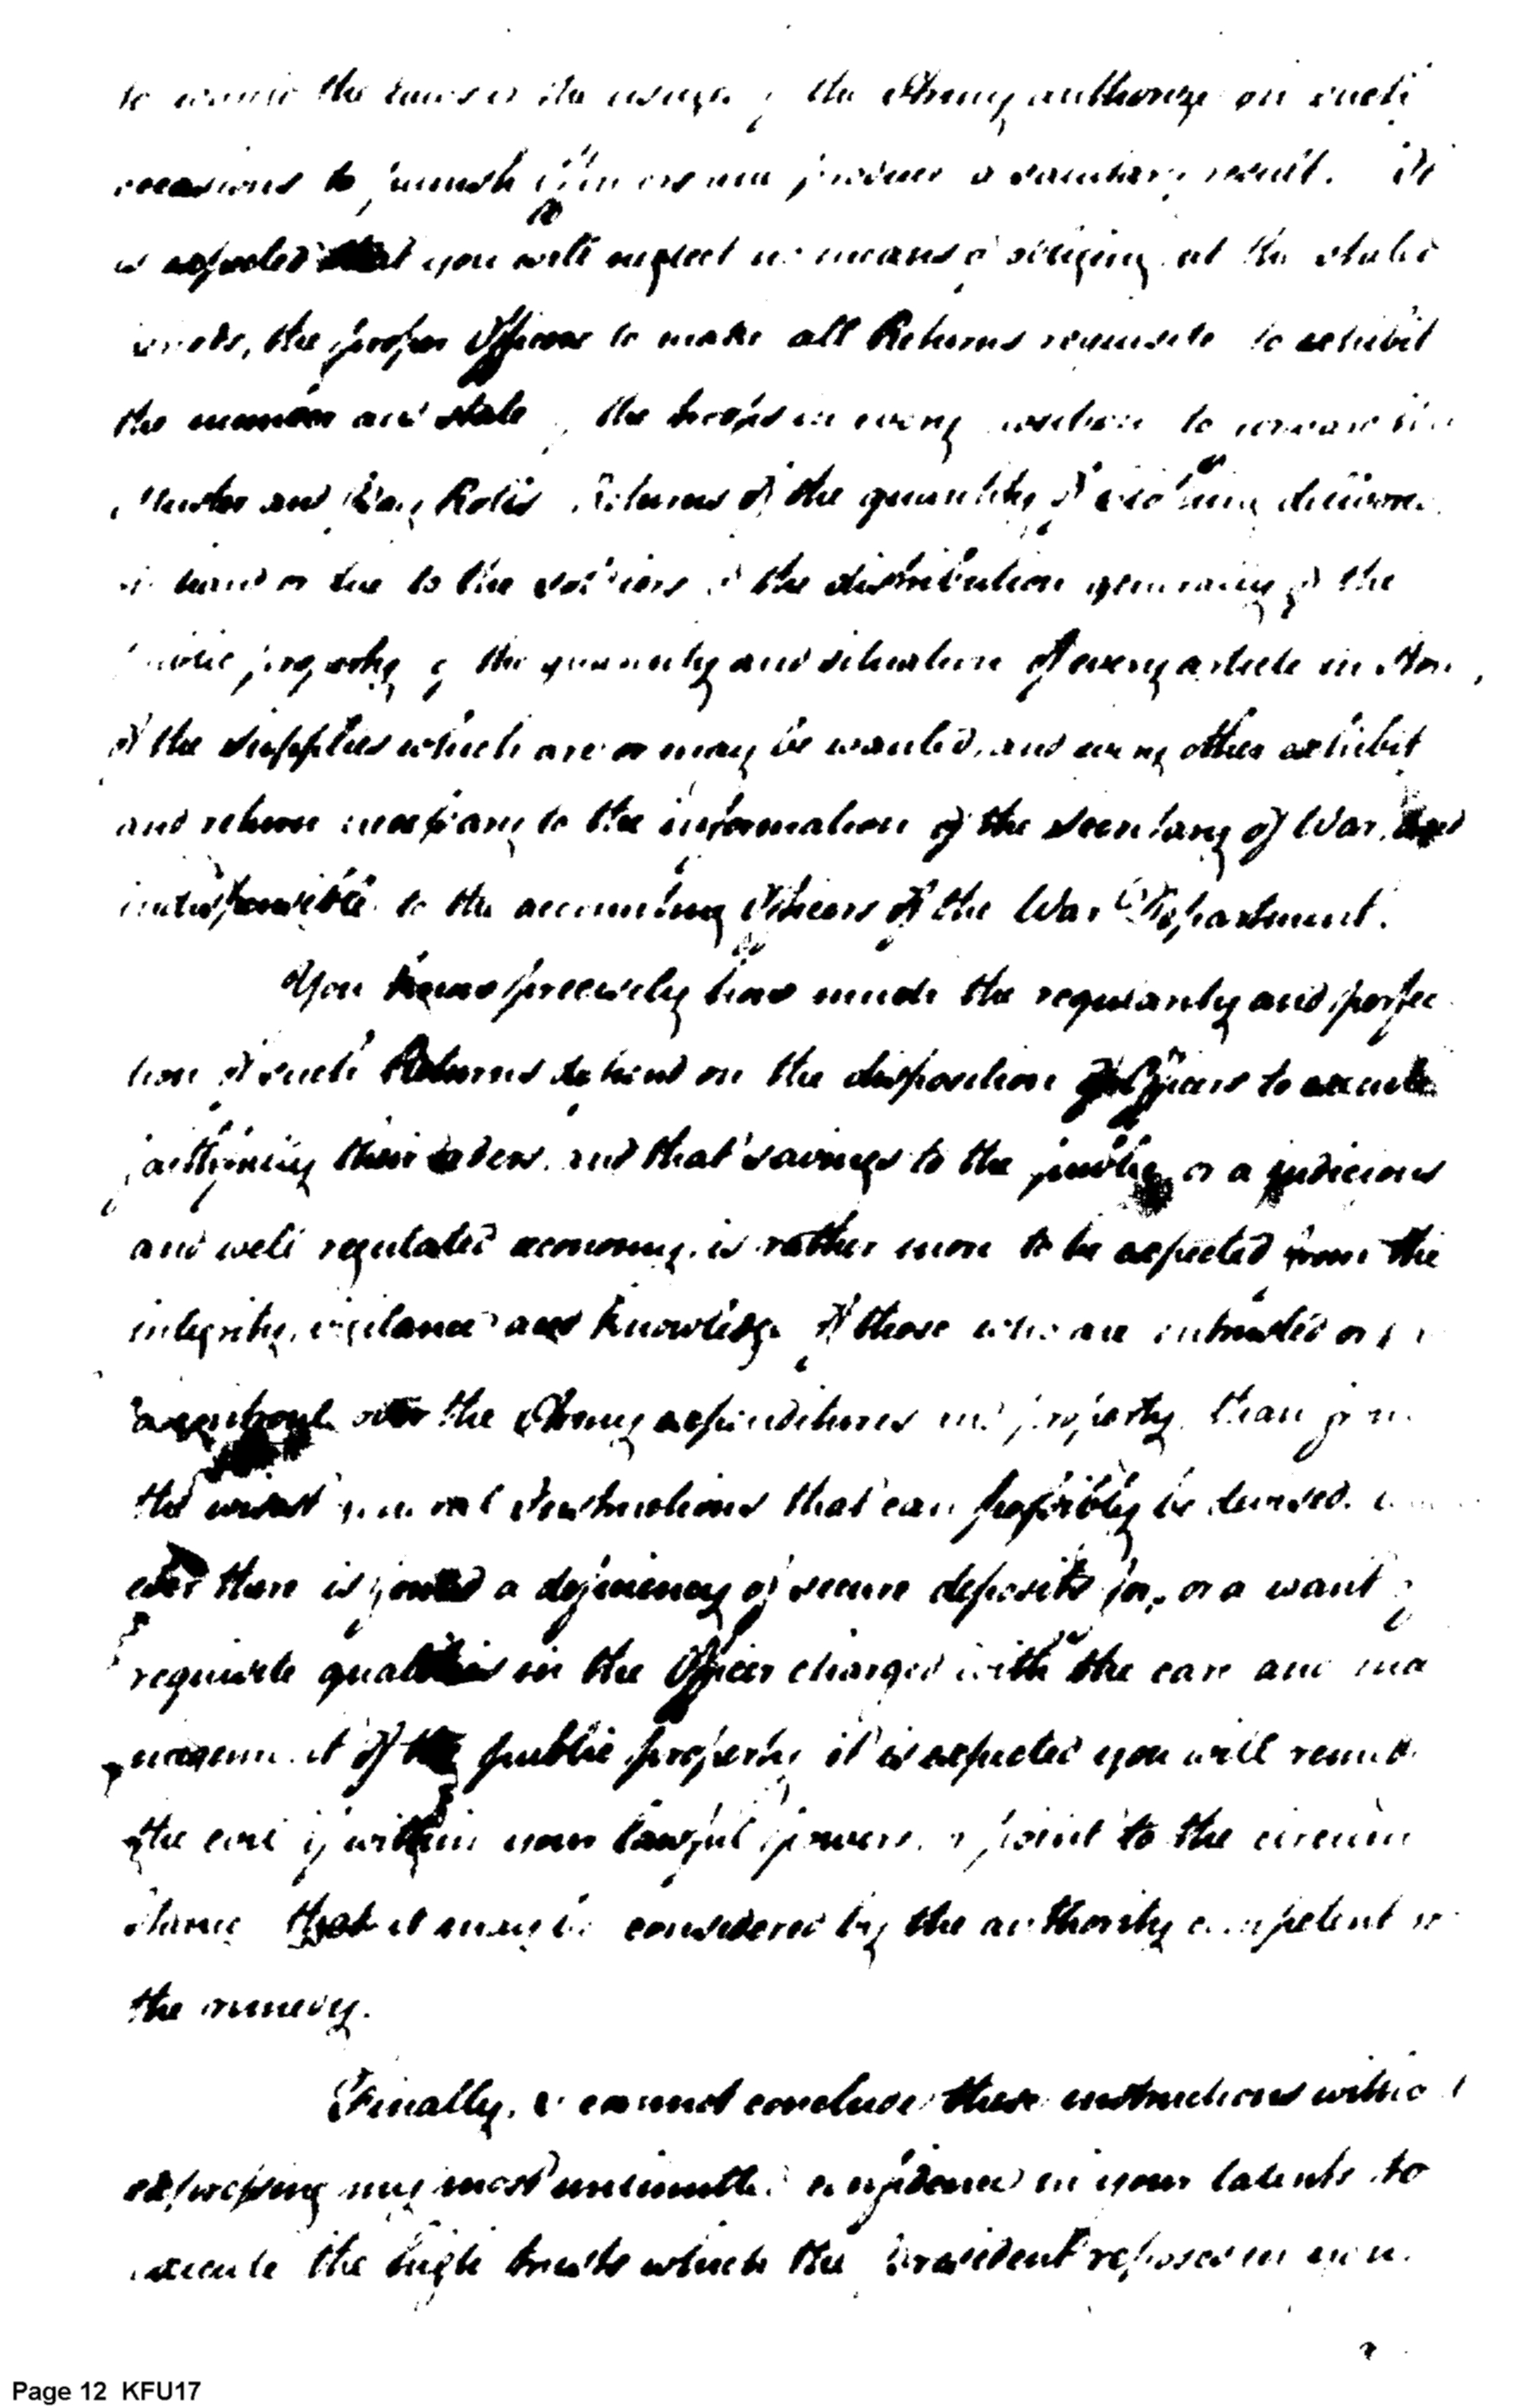 to the laws or the usage of the Army authorize on such
occasions to punish Officers may produce a salutary result. It
is expected that you will neglect no means of obliging at the stated
periods, the proper Officers to make all Returns requisite to exhibit
the number and state of the troops in every position to forward the
Muster and Pay Rolls Returns of the quantity of cloathing delivered
on hand or due to the soldiers of the distribution generally of the
public property of the quantity and situation of every article in store,
of the supplies which are or may be wanted, and every other exhibit
and return necessary to the information of the Secretary of War, and
indispensible to the accounting Officers of the War Department.
You know precisely how much the regularity and perfec
tion of such Returns depend on the disposition of Officers to execute
faithfully their orders, and that savings to the public, or a judicious
and well regulated economy, is rather more to be expected from the
integrity, vigilance and knowledge of those who are entrusted or
over the Army expenditures and property, than from
the wisest general Instructions that can possibly be devised.
ever there is found a deficiency of secure deposits for, or a want of
requisite qualities in the Officer charged with the care and ma
nagement of the public property it is expected you will remedy
the evil if within your lawful powers, or point to the circum
stance that it may be considered by the authority competent to
the remedy.
Finally, I cannot conclude these instructions without
expressing my most unlimitted confidence in your talents to
execute the high trusts which the President reposes in you.
Page 12 KFU17